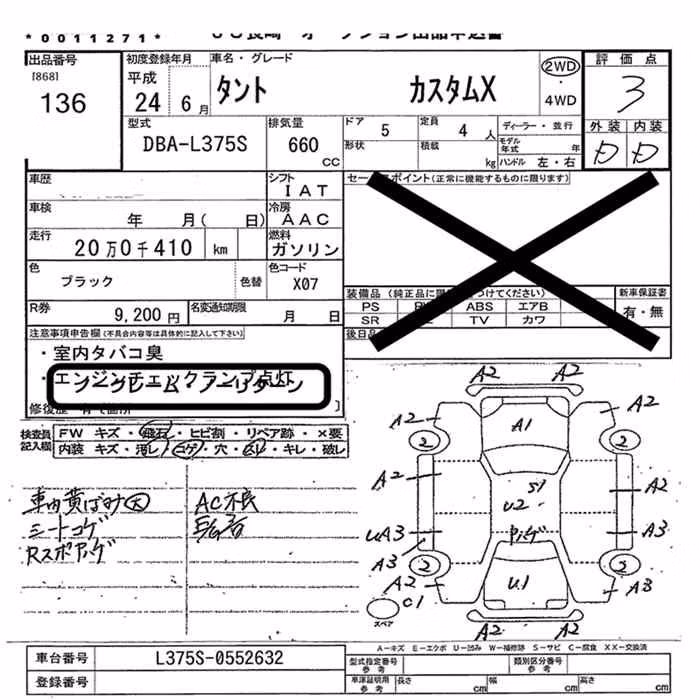 *0011271*
出品番号
[868]
136
初度登録年月
平成
24 6月
車名・グレード
タント カスタムX
2WD
・
4WD
評価点
3
外装 内装
D D
型式
DBA-L375S
排気量
660
CC
ドア 5
定員 4 人
形状
積載 kg
ディーラー・並行
モデル年式 年
ハンドル 左・右
車歴
シフト
IAT
車検
年 月( 日)
冷房
AAC
走行
20万0千410 km
燃料
ガソリン
色
ブラック
色替
色コード
X07
R券
9,200円
名変通知期限
月 日
セールスポイント(正常に機能するものに限ります)
装備品
PS
ABS エアB
SR
TV カワ
新車保証書
有・無
注意事項申告欄(不具合内容等は具体的に記入して下さい)
・室内タバコ臭
・エンジンチェックランプ点灯
ノークレーム ノーリターン
検査員
記入欄
FW キズ・飛石・ヒビ割・リペア跡・×要
内装 キズ・汚レ・コゲ・穴・スレ・キレ・破レ
車内黄ばみ大
シートコゲ
Rスポハゲ
AC不良
A2 A2
A2 A2
2 2
A1
A2 A2
S1
U2
UA3 A3
ハゲ
A3
2 2
A2 A3
U1
C1
スペア
A2 A2
A-キズ E-エクボ U-凹み W-補修跡 S-サビ C-腐食 XX-交換済
車台番号
L375S-0552632
登録番号
型式指定番号
参考
類別区分番号
参考
車庫証明用
参考
長さ cm
幅 cm
高さ cm